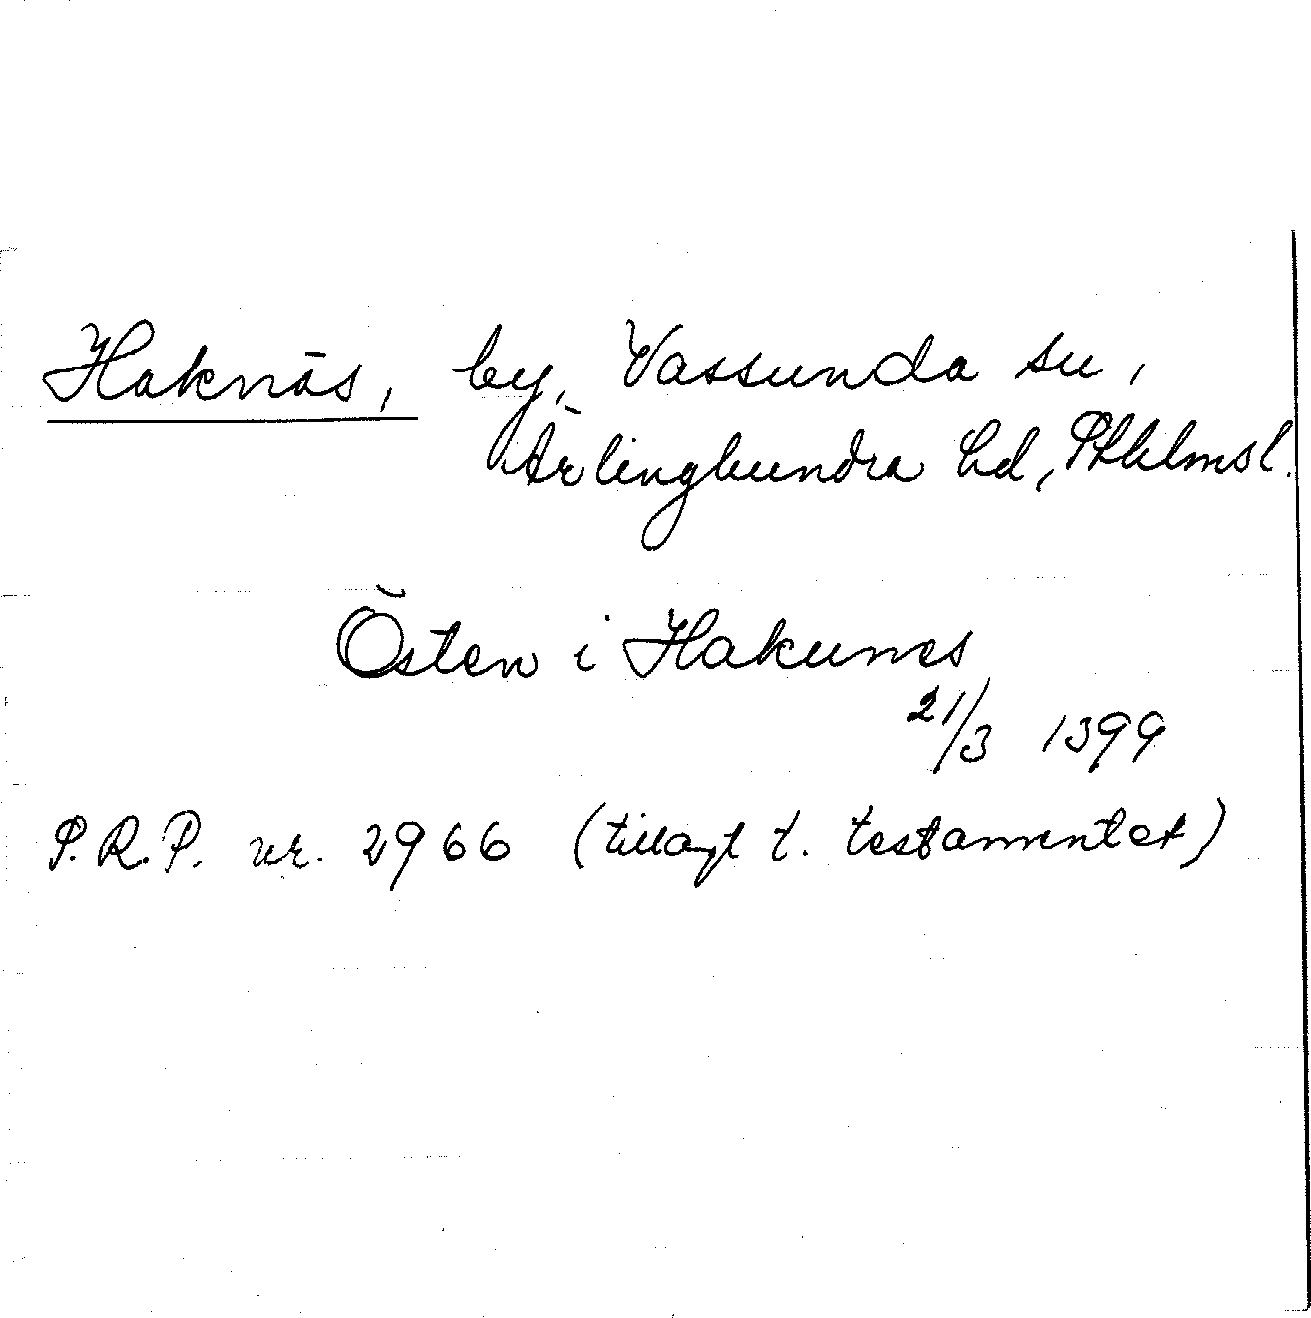 Haknäs, by, Vassunda sn,
Ärlinghundra hd, Sthlmsl.
Östen i Hakunes
21/3 1399
P.R.P. nr. 2966 (tillagt t. testamentet)